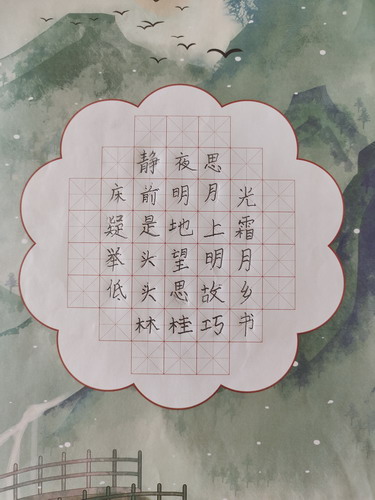 静夜思
床前明月光
疑是地上霜
举头望明月
低头思故乡
林桂巧书